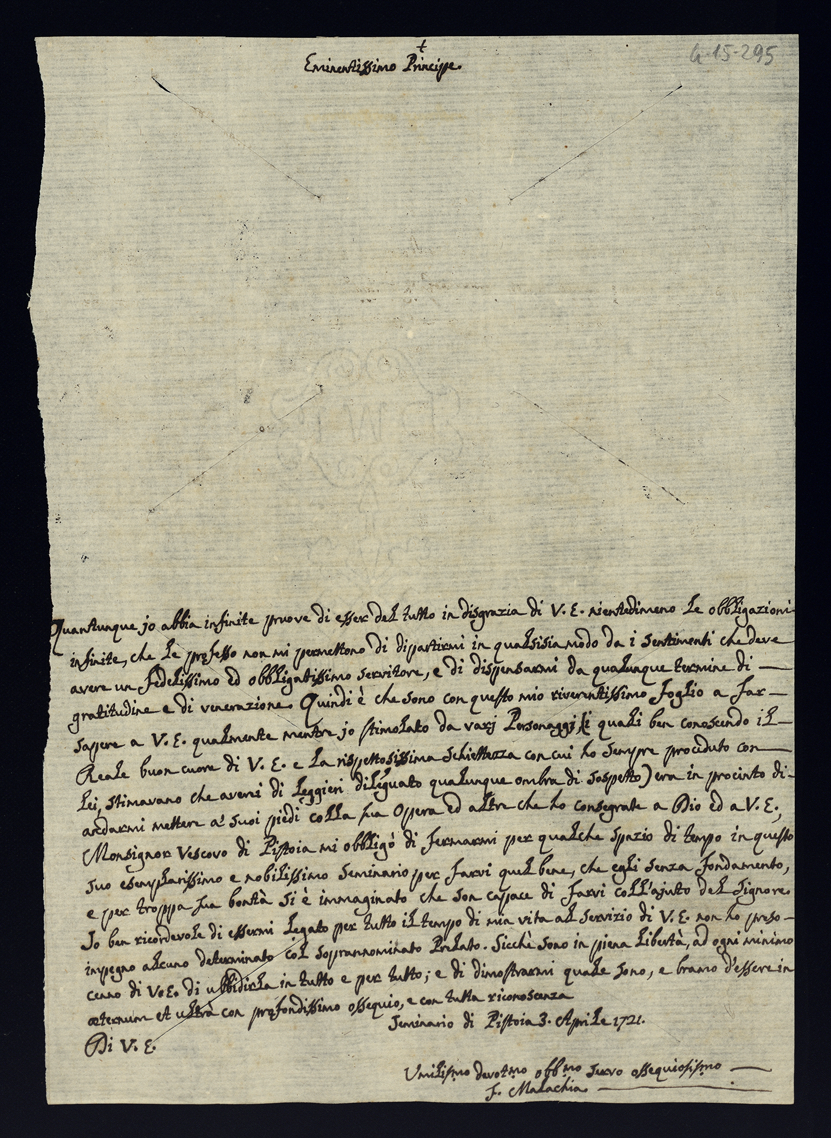 4-15-295
+
Eminentissimo Principe.
Quantunque jo abbia infinite pruove di esser del tutto in disgrazia di V. E. nientedimeno le obbligazioni
infinite, che le professo non mi permettono di dispartirmi in qualsisia modo da i sentimenti che deve
avere un fedelissimo ed obbligatissimo servitore, e di dispensarmi da qualunque termine di —
gratitudine e di venerazione. Quindi è che sono con questo mio riverentissimo foglio a far —
sapere a V. E. qualmente mentre jo stimolato da varj Personaggj (i quali ben conoscendo il —
Reale buon cuore di V. E. e la rispettosissima schiettezza con cui ho sempre proceduto con —
Lei, stimavano che averei di leggieri dileguato qualunque ombra di sospetto) era in procinto di -
andarmi mettere a' suoi piedi colla sua Opera ed altre che ho consegrate a Dio ed a V. E.,
Monsignor Vescovo di Pistoia mi obbligò di fermarmi per qualche spazio di tempo in questo
suo esemplarissimo e nobilissimo Seminario per farvi quel bene, che egli senza fondamento,
e per troppa sua bontà si è immaginato che son capace di farvi coll'ajuto del Signore.
Jo ben ricordevole di essermi legato per tutto il tempo di mia vita al servizio di V. E. non ho preso —
impegno alcuno determinato col soprannominato Prelato. Sicchè sono in piena libertà, ad ogni minimo
cenno di V. E. di ubbidirla in tutto e per tutto; e di dimostrarmi quale sono, e bramo d'essere in
æternum et ultra con profondissimo ossequio, e con tutta riconoscenza
Seminario di Pistoia 3. Aprile 1721.
Di V. E.
Umilis.mo devot.mo obb.mo servo ossequiosissimo —
F. Malachia —